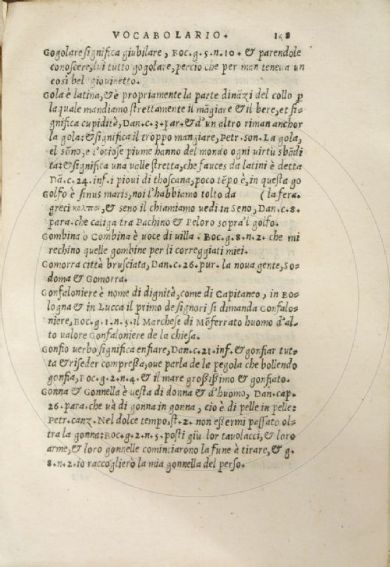 VOCABOLARIO. 148
Gogolare significa giubilare, Boc.g.5.n.10. & parendole
conoscere, lui tutto gogolare, percio che per man teneua un
cosi bel giouinetto.
Gola è latina, & è propriamente la parte dināzi del collo p
la quale mandiamo strettamente il māgiare & il bere, et si
gnifica cupidità, Dan.c.3.par. & d'un altro riman anchor
la gola: & significa il troppo mangiare, Petr.son. La gola,
el sōno, e l'otiose piume hanno del mondo ogni uirtù sbādi
ta: & significa una ualle stretta, che fauces da latini è detta
Dā.c.24.inf. i pioui di thoscana, poco tēpo è, in questa go
Golfo è sinus maris, noi l'habbiamo tolto da (la fera.
greci κολπο, & seno il chiamiamo uedi in Seno, Dan.c.8.
para. che caliga tra Pachino & Peloro sopra'l golfo.
Gombina o Combina è uoce di uilla. Boc.g.8.n.2. che mi
rechino quelle gombine per li correggiati miei.
Gomorra città brusciata, Dan.c.26.pur. la noua gente, So=
doma & Gomorra.
Gonfaloniere è nome di dignità, come di Capitaneo, in Bo=
logna & in Lucca il primo de signori si dimanda Confalo=
niere, Boc.g.1.n.5. il Marchese di Mōferrato huomo d'al=
to ualore Gonfaloniere de la chiesa.
Gonfio uerbo significa enfiare, Dan.c.21.inf. & gonfiar tut=
ta e riseder compressa, oue parla de la pegola che bollendo
gonfia, Boc.g.2.n.4. il mare grossissimo & gonfiato.
Gonna & Gonnella è uesta di donna & d'huomo, Dan.cap.
26.para. che uà di gonna in gonna, ciò è di pelle in pelle:
Petr.canz. Nel dolce tempo, st.2. non essermi passato ol=
tra la gonna: Boc.g.2.n.5. posti giù lor tauolacci, & loro
arme, & loro gonnelle cominciarono la fune à tirare, & g.
8.n.2. io raccoglierò la mia gonnella del perso.